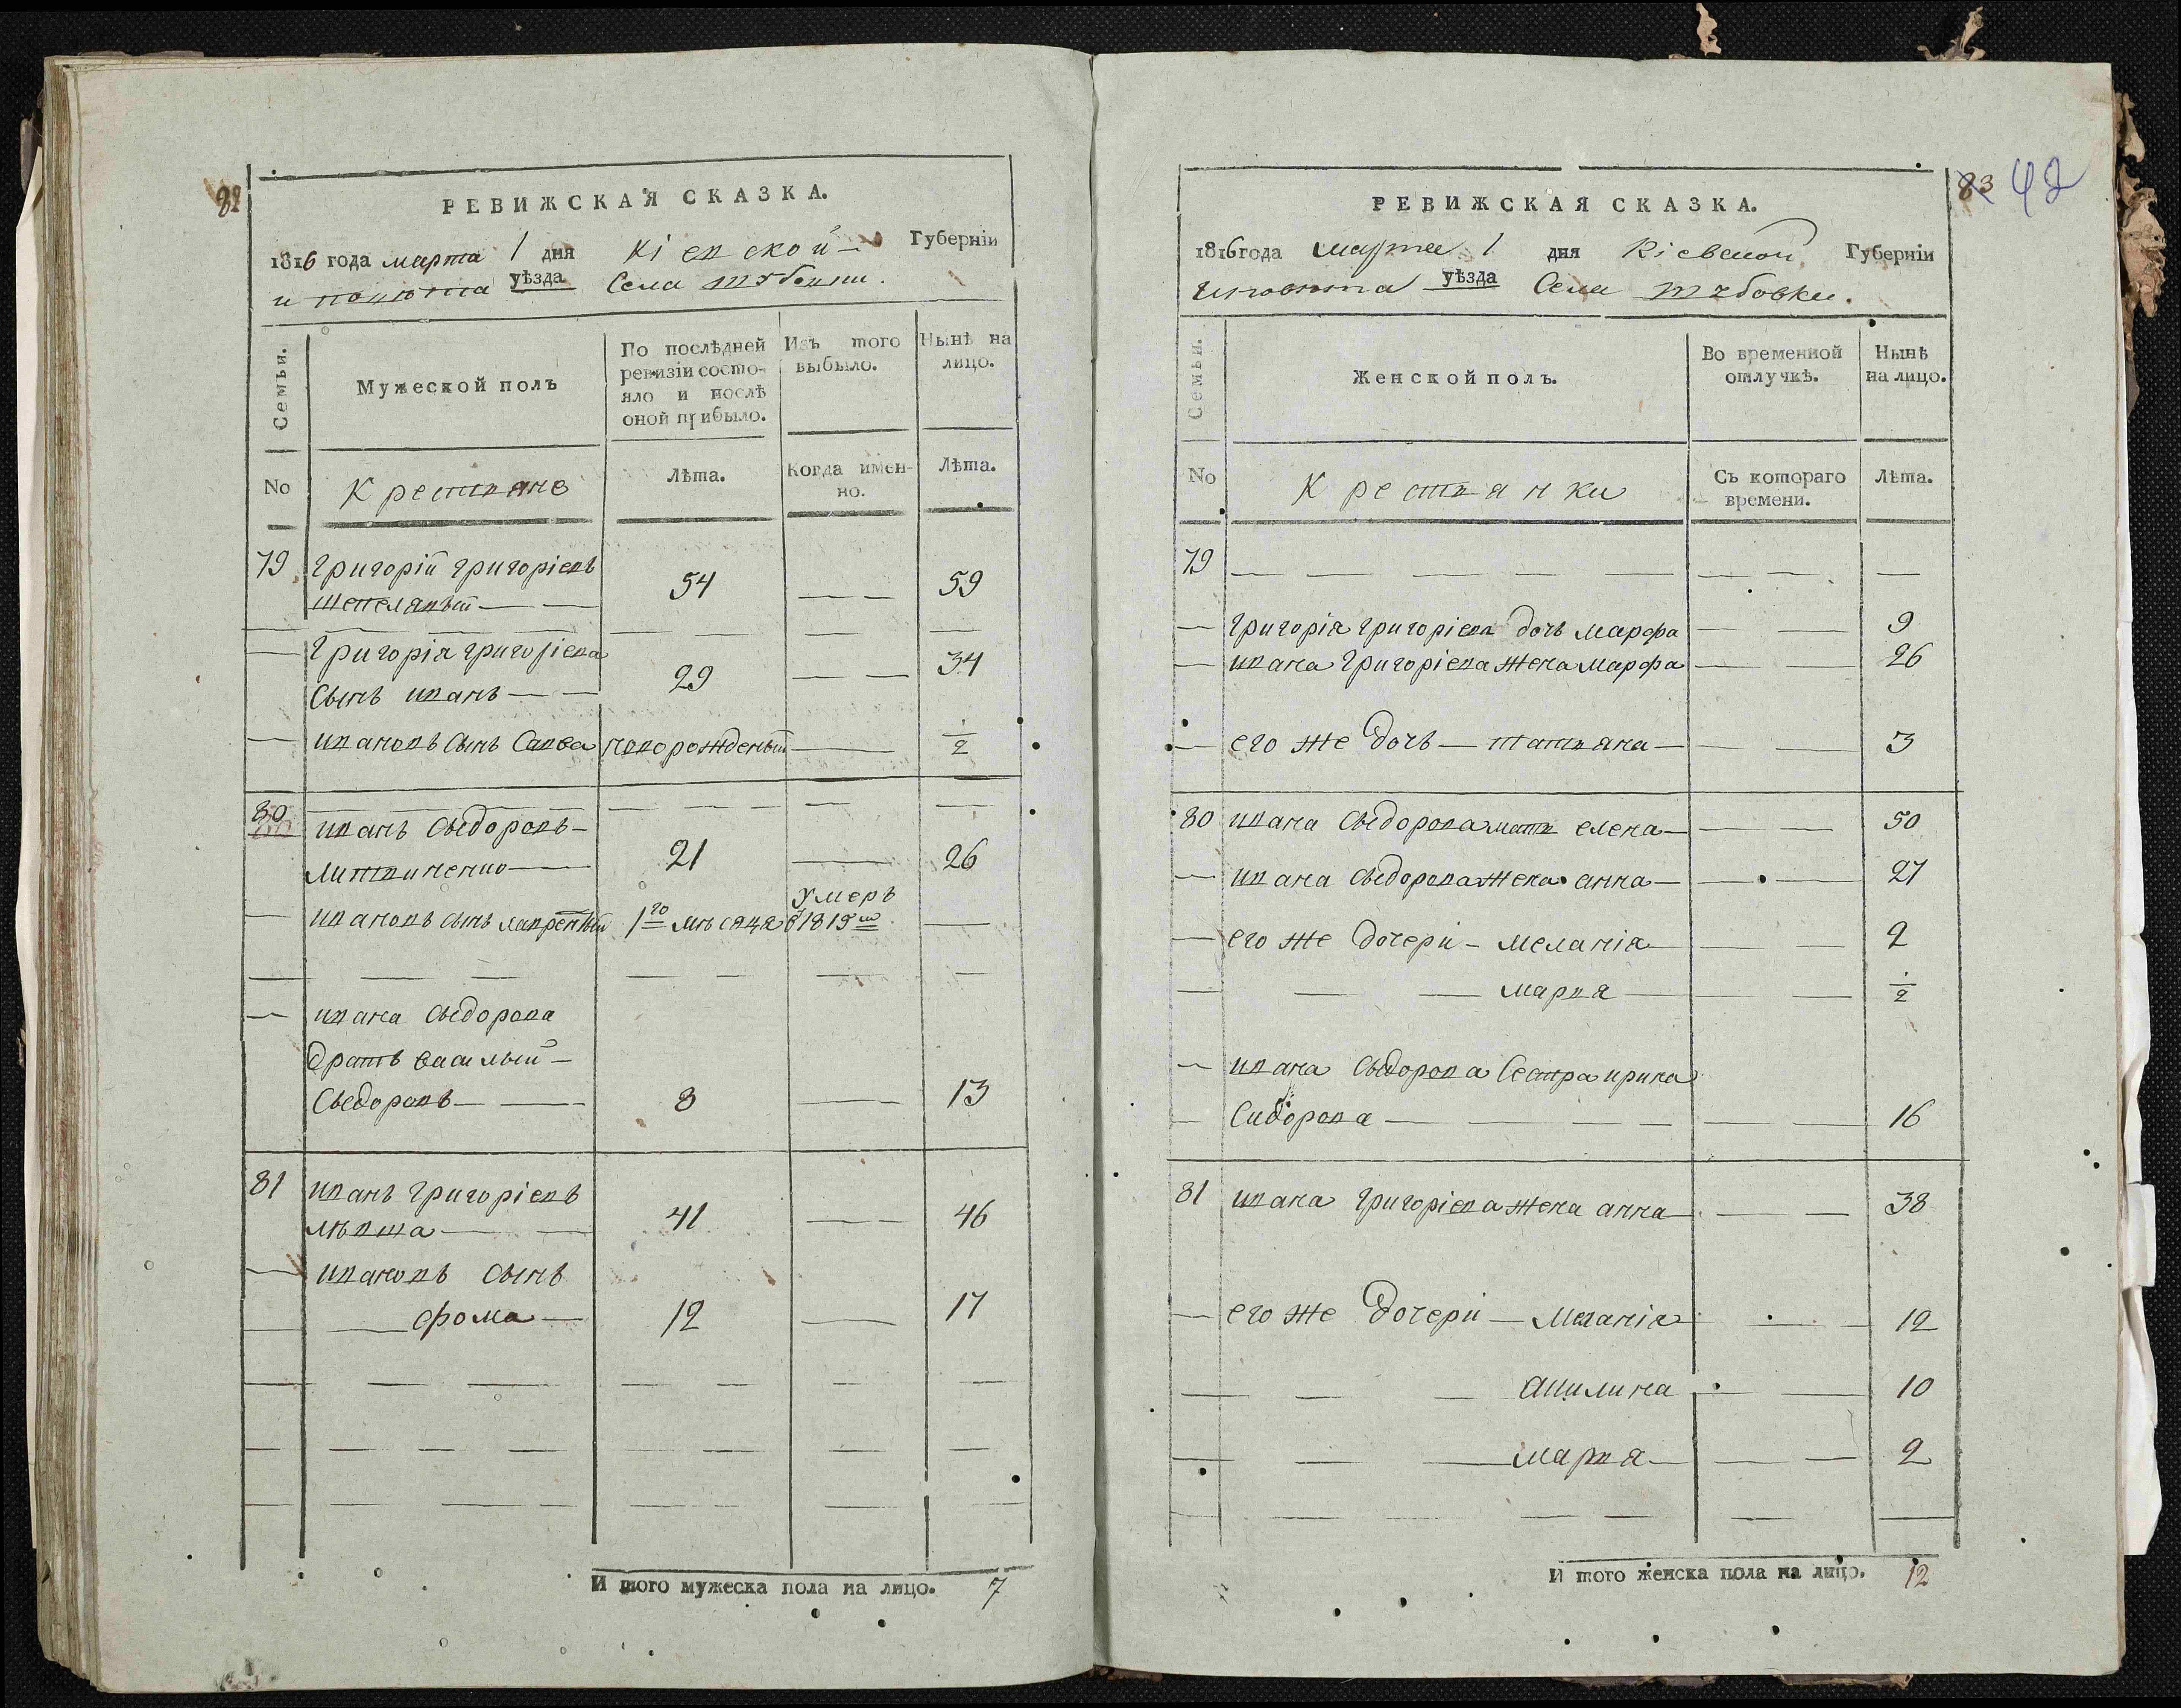 82
РЕВИЖСКАЯ СКАЗКА.
1816 года марта 1 дня Кіевской Губерніи
и повюта уѣзда Села
Семьи.
Мужеской полъ
По послѣдней ревизіи состояло и послѣ оной прибыло.
Изъ того выбыло.
Нынѣ на лицо.
No
Крестьяне
Лѣта.
Когда именно.
Лѣта.
79 Григорій Григоріевъ
54 59
Григорія Григоріева
Сынъ иванъ 29 34
ивановъ Сынъ Савва новорожденый 1/2
80
иванъ Сыдоровъ
Литвиненко 21 26
Умеръ
ивановъ сынъ Лаврентый 1го мѣсяца в 1815м
ивана Сыдорова
братъ василый
Сыдоровъ 8 13
81 иванъ Григоріевъ
41 46
ивановъ сынъ
фома 12 17
И того мужеска пола на лицо. 7
83 42
РЕВИЖСКАЯ СКАЗКА.
1816 года марта 1 дня Кіевской Губерніи
уѣзда Села
Семьи.
Женской полъ.
Во временной отлучкѣ.
Нынѣ на лицо.
No
Крестьянки
Съ котораго времени.
Лѣта.
79
Григорія Григоріева дочь марфа 9
ивана Григоріева жена марфа 26
его же дочь татьяна 3
80 ивана Сыдорова мать елена 50
ивана Сыдорова жена анна 27
его же дочери меланія 2
марья 1/2
ивана Сыдорова Сестра ирина
Сидорова 16
81 ивана Григоріева жена анна 38
его же дочери Меланія 12
Акилина 10
марья 2
И того женска пола на лицо. 12